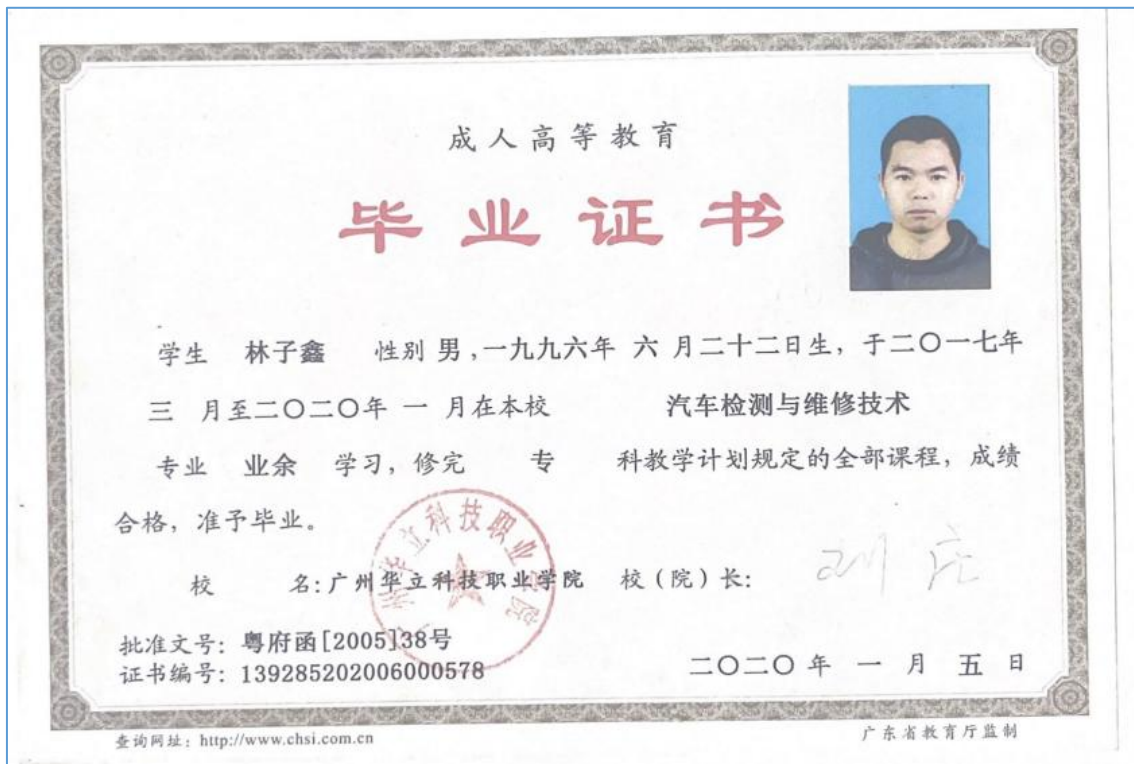 成人高等教育
毕业证书
学生 林子鑫 性别 男,一九九六年 六 月二十二日生,于二〇一七年
三 月至二〇二〇年 一 月在本校 汽车检测与维修技术
专业 业余 学习,修完 专 科教学计划规定的全部课程,成绩
合格,准予毕业。
广州华立科技职业学院
校 名:广州华立科技职业学院 校(院)长:
批准文号:粤府函[2005]38号
证书编号:139285202006000578 二〇二〇 年 一 月 五 日
查询网址:http://www.chsi.com.cn 广东省教育厅监制